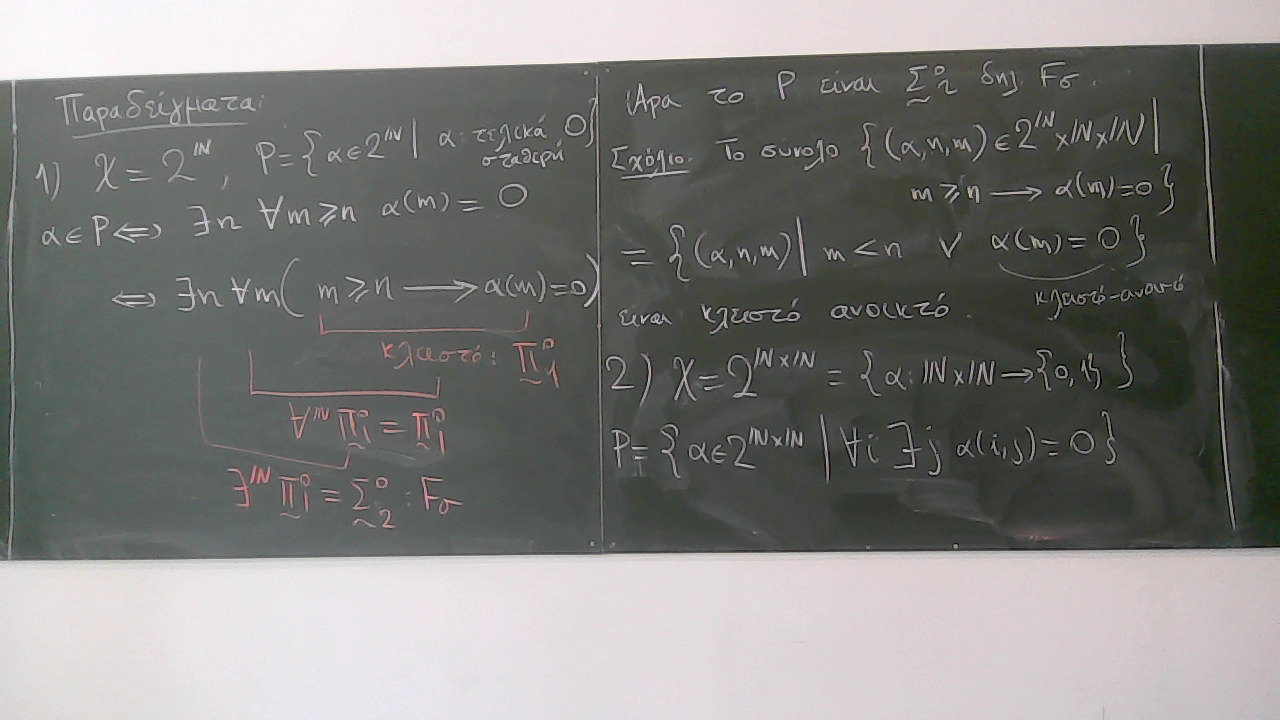 Παραδείγματα:
1) X = 2^ℕ, P = {α ∈ 2^ℕ | α: τελικά σταθερή 0}
α ∈ P ⟺ ∃n ∀m ≥ n α(m) = 0
⟺ ∃n ∀m ( m ≥ n ⟶ α(m) = 0)
κλειστό: Π̰⁰₁
∀^ℕ Π̰⁰₁ = Π̰⁰₁
∃^ℕ Π̰⁰₁ = Σ̰⁰₂ : Fσ
Άρα το P είναι Σ̰⁰₂ δηλ Fσ.
Σχόλιο. Το σύνολο {(α,n,m) ∈ 2^ℕ × ℕ × ℕ |
m ≥ n ⟶ α(m) = 0}
= {(α,n,m) | m < n ∨ α(m) = 0}
κλειστό-ανοικτό
είναι κλειστό ανοικτό.
2) X = 2^{ℕ×ℕ} = {α: ℕ×ℕ → {0,1} }
P = {α ∈ 2^{ℕ×ℕ} | ∀i ∃j α(i,j) = 0}